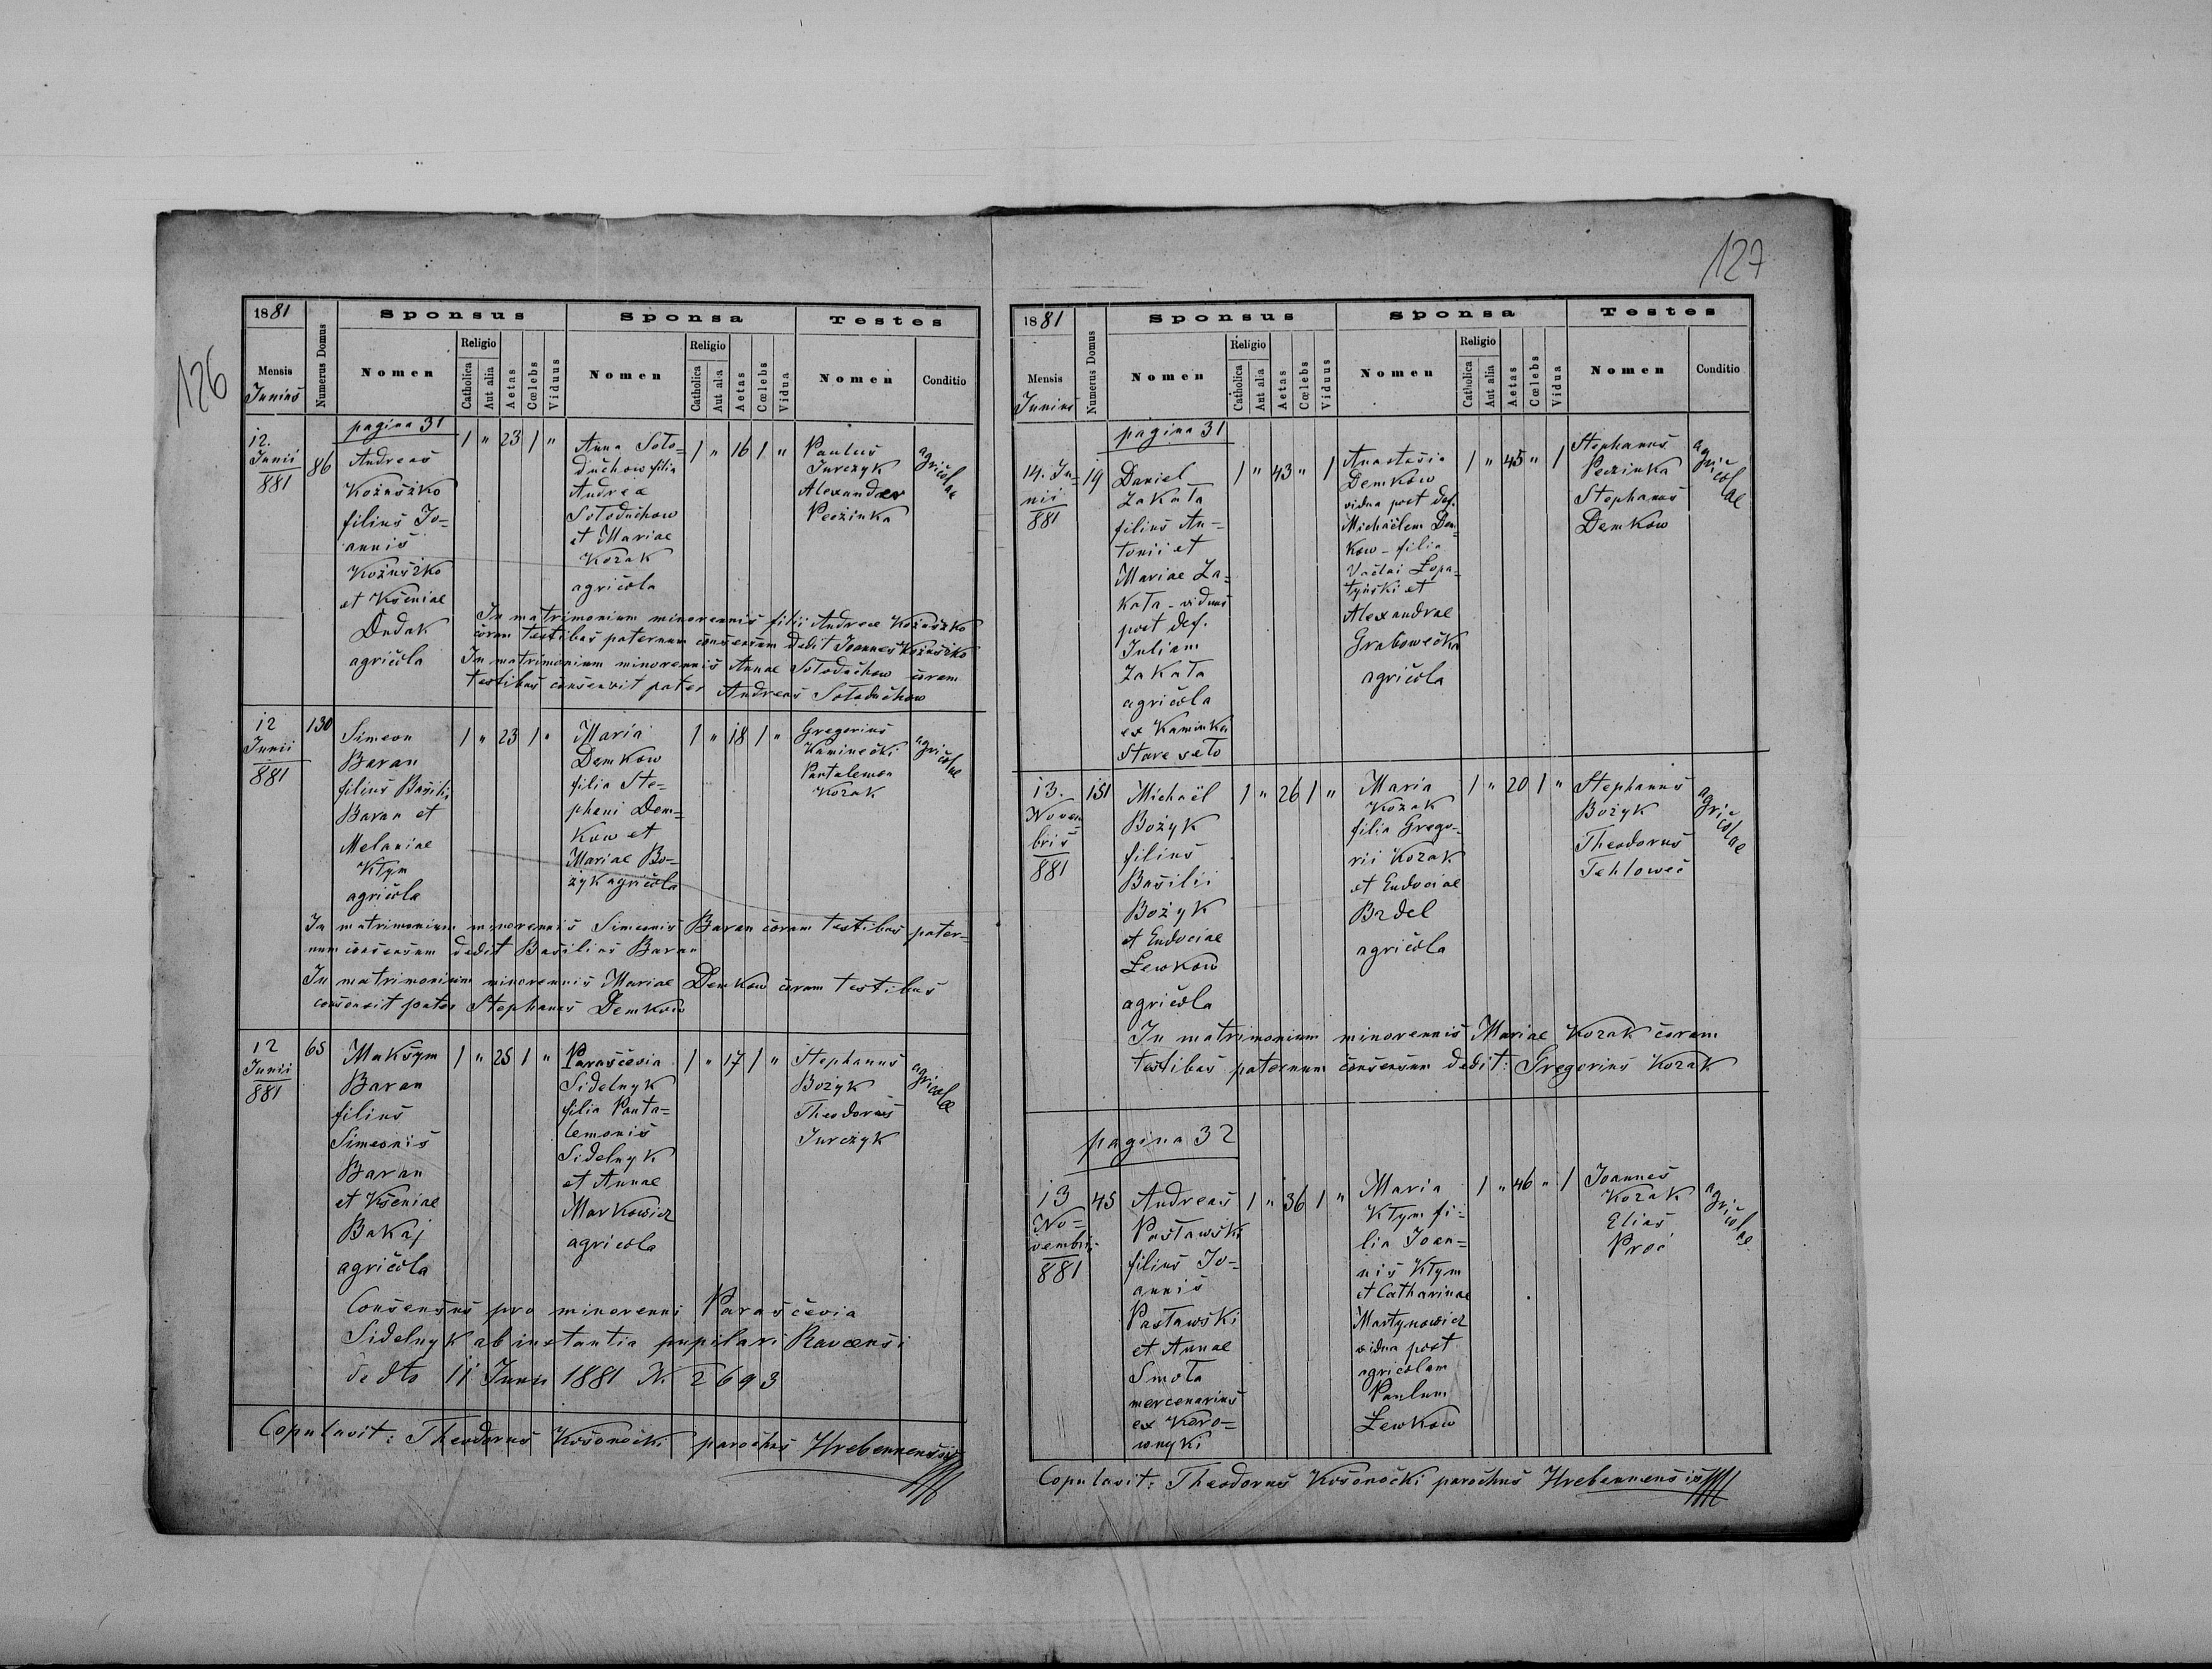 126
1881
Mensis
Junius
Numerus Domus
Sponsus
Nomen
Religio
Catholica
Aut alia
Aetas
Cœlebs
Viduus
Sponsa
Nomen
Religio
Catholica
Aut alia
Aetas
Cœlebs
Vidua
Testes
Nomen
Conditio
pagina 31
12.
Junii
881
86
Andreas
Kożuszko
filius Jo-
annis
Kożuszko
et Kseniae
Dudak
agricola
1 " 23 1 "
Anna Soło-
duchow filia
Andreae
Sołoduchow
et Mariae
Kozak
agricola
1 " 16 1 "
Paulus
Jurczyk
Alexander
Peczinka
agricolae
In matrimonium minorennis filii Andreae Kożuszko
coram testibus paternum consensum dedit Joannes Kożuszko
In matrimonium minorennis Annae Sołoduchow coram
testibus consensit pater Andreas Sołoduchow
12
Junii
881
130
Simeon
Baran
filius Basilii
Baran et
Melaniae
Kłym
agricola
1 " 23 1 "
Maria
Demkow
filia Ste-
phani Dem-
kow et
Mariae Bo-
żyk agricola
1 " 18 1 "
Gregorius
Kaminecki
Pantalemon
Kozak
agricolae
In matrimonium minorennis Simeonis Baran coram testibus pater-
num consensum dedit Basilius Baran
In matrimonium minorennis Mariae Demkow coram testibus
consensit pater Stephanus Demkow
12
Junii
881
65
Maksym
Baran
filius
Simeonis
Baran
et Kseniae
Bakaj
agricola
1 " 25 1 "
Parascevia
Sidelnyk
filia Panta-
lemonis
Sidelnyk
et Annae
Markowicz
agricola
1 " 17 1 "
Stephanus
Bożyk
Theodorus
Jurczyk
agricolae
Consensus pro minorenni Parascevia
Sidelnyk ab instantia pupilari Ravensi
de dto 11 Junii 1881 N. 2693
Copulavit: Theodorus Kossonocki parochus Hrebennensis
127
1881
Mensis
Junius
Numerus Domus
Sponsus
Nomen
Religio
Catholica
Aut alia
Aetas
Cœlebs
Viduus
Sponsa
Nomen
Religio
Catholica
Aut alia
Aetas
Cœlebs
Vidua
Testes
Nomen
Conditio
pagina 31
14. Ju-
nii
881
19
Daniel
Zakała
filius An-
tonii et
Mariae Za-
kała - viduus
post def.
Juliam
Zakała
agricola
ex Kaminka
Stare seło
1 " 43 " 1
Anastasia
Demkow
vidua post def.
Michaëlem Dem-
kow - filia
Vaclai Łopa-
tyński et
Alexandrae
Grabowecka
agricola
1 " 45 " 1
Stephanus
Peczinka
Stephanus
Demkow
agricolae
13.
Novem
bris
881
151
Michaël
Bożyk
filius
Basilii
Bożyk
et Eudociae
Lewkow
agricola
1 " 26 1 "
Maria
Kozak
filia Grego-
rii Kozak
et Eudociae
Brdel
agricola
1 " 20 1 "
Stephanus
Bożyk
Theodorus
Tehlowec
agricolae
In matrimonium minorennis Mariae Kozak coram
testibus paternum consensum dedit: Gregorius Kozak
pagina 32
13
No-
vembris
881
45
Andreas
Pastawski
filius Jo-
annis
Pastawski
et Annae
Smoła
mercenarius
ex Kero-
wnyki
1 " 36 1 "
Maria
Kłym fi-
lia Joan-
nis Kłym
et Catharinae
Martynowicz
vidua post
agricolam
Paulum
Lewkow
1 " 46 " 1
Joannes
Kozak
Elias
Proć
agricolae
Copulavit: Theodorus Kossonocki parochus Hrebennensis